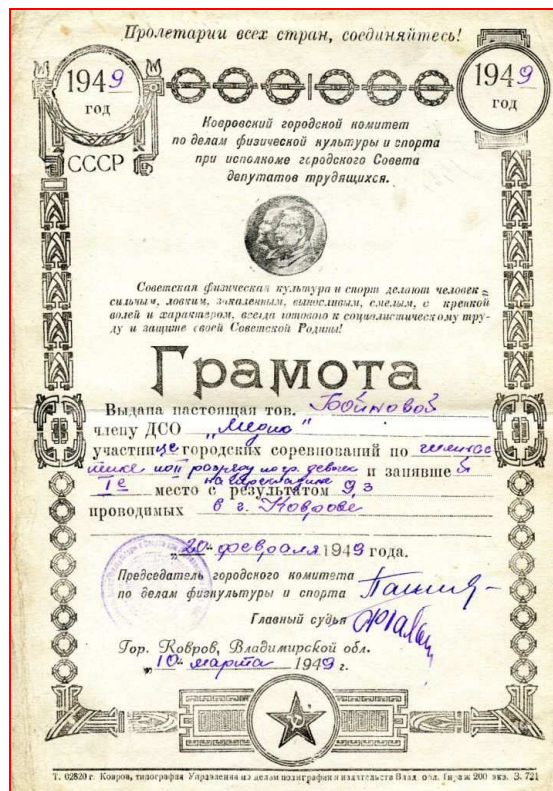 Пролетарии всех стран, соединяйтесь!
1949 год
1949 год
СССР
Ковровский городской комитет
по делам физической культуры и спорта
при исполкоме городского Совета
депутатов трудящихся.
Советская физическая культура и спорт делают человека
сильным, ловким, закаленным, выносливым, смелым, с крепкой
волей и характером, всегда готового к социалистическому тру-
ду и защите своей Советской Родины!
Грамота
Выдана настоящая тов.
члену ДСО „Медик"
участнице городских соревнований по гимнас
тике и занявшей
на перекладине
Iе место с результатом 9,3
проводимых в г. Коврове
„20" февраля 1949 года.
Председатель городского комитета
по делам физкультуры и спорта
Главный судья
Гор. Ковров, Владимирской обл.
„10" марта 1949 г.
Т. 02820 г. Ковров, типография Управления по делам полиграфии и издательств Влад. обл. Тираж 200 экз. З. 721